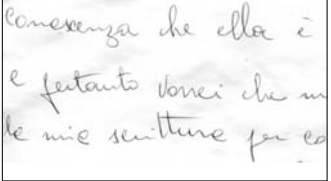 conoscenza che ella è
e pertanto vorrei che m
le mie scritture per co